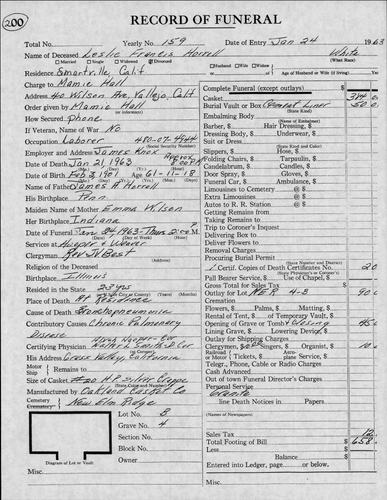 200
RECORD OF FUNERAL
Total No. Yearly No. 159 Date of Entry Jan 24 1963
Name of Deceased Leslie Francis Horrell White
Married Single Widowed Divorced Husband Wife Widow or (What Race)
Residence Smartville, Calif Age of Husband or Wife (if living) Yrs.
Charge to Mamie Hall
Address 40 Wilson Ave, Vallejo, Calif
Order given by Mamie Hall
or informant
How Secured phone
If Veteran, Name of War No
Occupation Laborer
(Social Security Number)
Employer and Address James Knox
Date of Death Jan 21, 1963
Date of Birth Feb 3, 1901 Age 61-11-18
Name of Father James A Horrell
His Birthplace Penn
Maiden Name of Mother Emma Wilson
Her Birthplace Indiana
Date of Funeral Jan 24 1963 Thurs 2:00 P.M.
Services at Hooper & Weaver
Clergyman Rev JV Best
(Address)
Religion of the Deceased
Birthplace Illinois
Resided in the State 23 yrs
Place of Death At Residence
Cause of Death Bronchopneumonia
Contributory Causes Chronic Pulmonary
Disease
Certifying Physician
His Address Grass Valley, California
Motor
Ship Remains to
Size of Casket #20 H.P. Silver Crepe
Manufactured by Oakland Casket Co
Cemetery New Elm Ridge
Lot No. B
Grave No. 4
Section No.
Block No.
Owner
Diagram of Lot or Vault
Misc.
Complete Funeral (except outlays) $
Casket
Burial Vault or Box 50 0
Embalming Body
(Name of Embalmer)
Barber, $ Hair Dressing, $
Dressing Body, $ Underwear, $
Suit or Dress
(State Kind and Color)
Slippers, $ Hose, $
Folding Chairs, $ Tarpaulin, $
Candelabrum, $ Candles, $
Door Spray, $ Gloves, $
Funeral Car, $ Ambulance, $
Limousines to Cemetery @ $
Extra Limousines @ $
Autos to R. R. Station @ $
Getting Remains
Taking Remains
Trip to Coroner's Inquest
Delivering Box to
Deliver Flowers to
Removal Charges
Procuring Burial Permit
(State Number and District)
1 Certif. Copies of Death Certificates No. 2 0
(State Physician's or Coroner's)
Pall Bearer Service, $ Use of Chapel, $
Gross Total for Sales Tax $
Outlay for Lot NER 4-B 90 0
Cremation
Flowers, $ Palms, $ Matting, $
Rental of Tent, $ or Temporary Vault, $
Opening of Grave or Tomb & Closing 45 0
Lining Grave, $ Lowering Device, $
Outlay for Shipping Charges
Clergyman, $ Singers, $ Organist, $ 10 0
Railroad or Motor Tickets, $ Aeroplane Service, $
Telegr., Phone, Cable or Radio Charges
Cash Advanced
Out of town Funeral Director's Charges
Personal Service
Granite
See Death Notices in Papers.
(Names of Newspapers)
Sales Tax 12
Total Footing of Bill $ 658
Less $
Balance $
Entered into Ledger, page or below.
Misc.